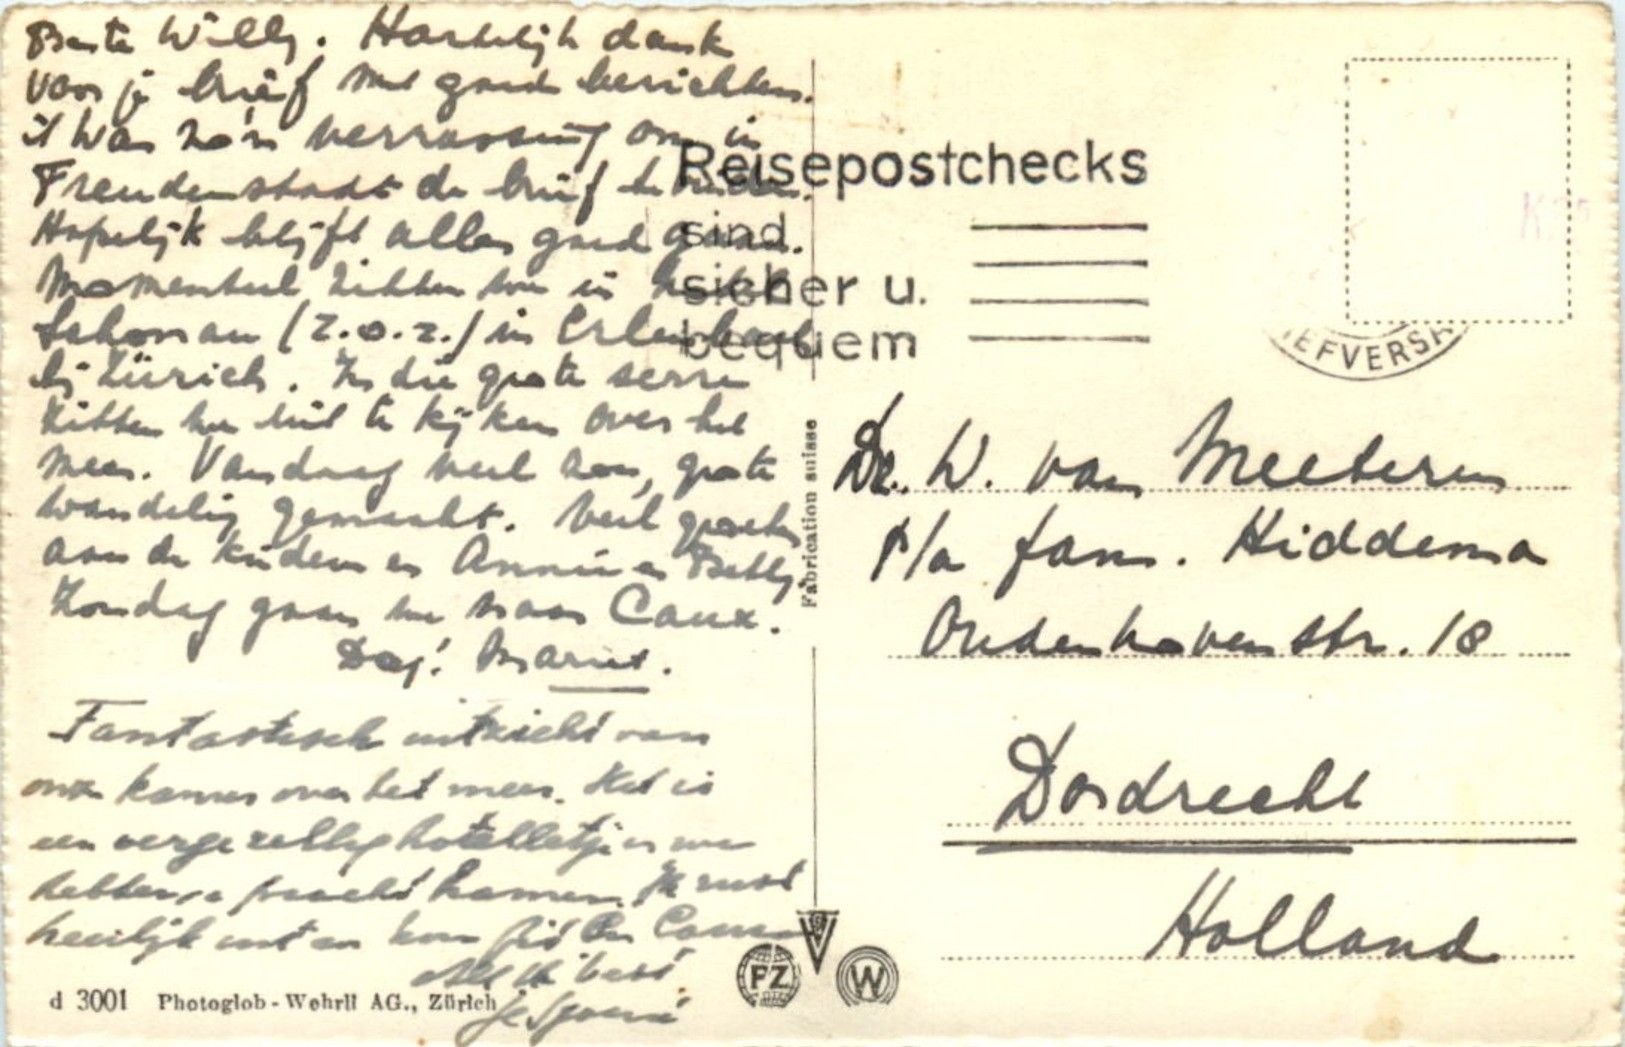 Beste Willy. Hartelijk dank
voor je brief met goede berichten.
't Was zo'n verrassing om in
Freudenstadt de brief te vinden.
Hopelijk blijft alles goed gaan.
Momenteel zitten we in hotel
Schönau (Z.O.Z.) in Erlenbach
bij Zürich. In die grote serre
zitten we uit te kijken over het
meer. Vandaag veel zon, grote
wandeling gemaakt. Veel groeten
aan de kinderen en Annie en Betty.
Zondag gaan we naar Caux.
Dag! Mariet.
Fantastisch uitzicht van
onze kamer over het meer. Het is
een vergezellig hotelletje en we
hebben pracht kamers. Ik rust
heerlijk uit en kom fit in Caux
All the best
je
d 3001 Photoglob-Wehrli AG., Zürich
Fabrication suisse
PZ
W
Reisepostchecks
sind
sicher u.
bequem
IEFVERSA
Dr. W. van Meeteren
p/a fam. Hiddema
Oudenhovenstr. 18
Dordrecht
Holland